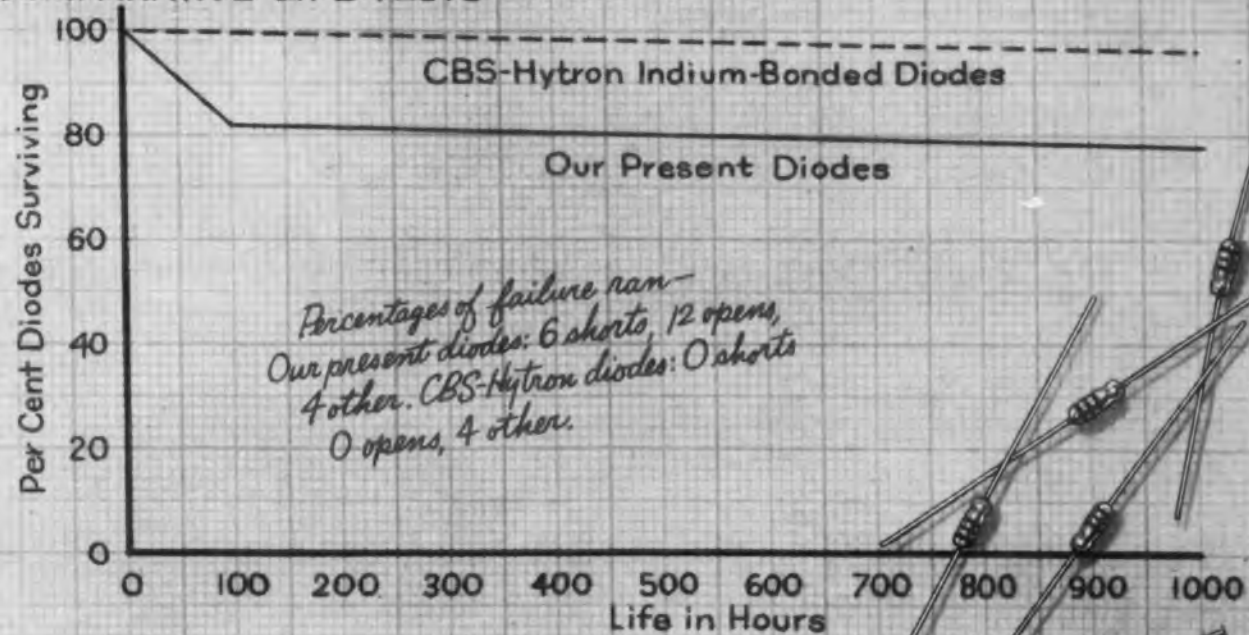 LIFE TESTS
100
80
60
40
20
0
Per Cent Diodes Surviving
CBS-Hytron Indium-Bonded Diodes
Our Present Diodes
Percentages of failure ran—
Our present diodes: 6 shorts, 12 opens,
4 other. CBS-Hytron diodes: 0 shorts
0 opens, 4 other.
0 100 200 300 400 500 600 700 800 900 1000
Life in Hours